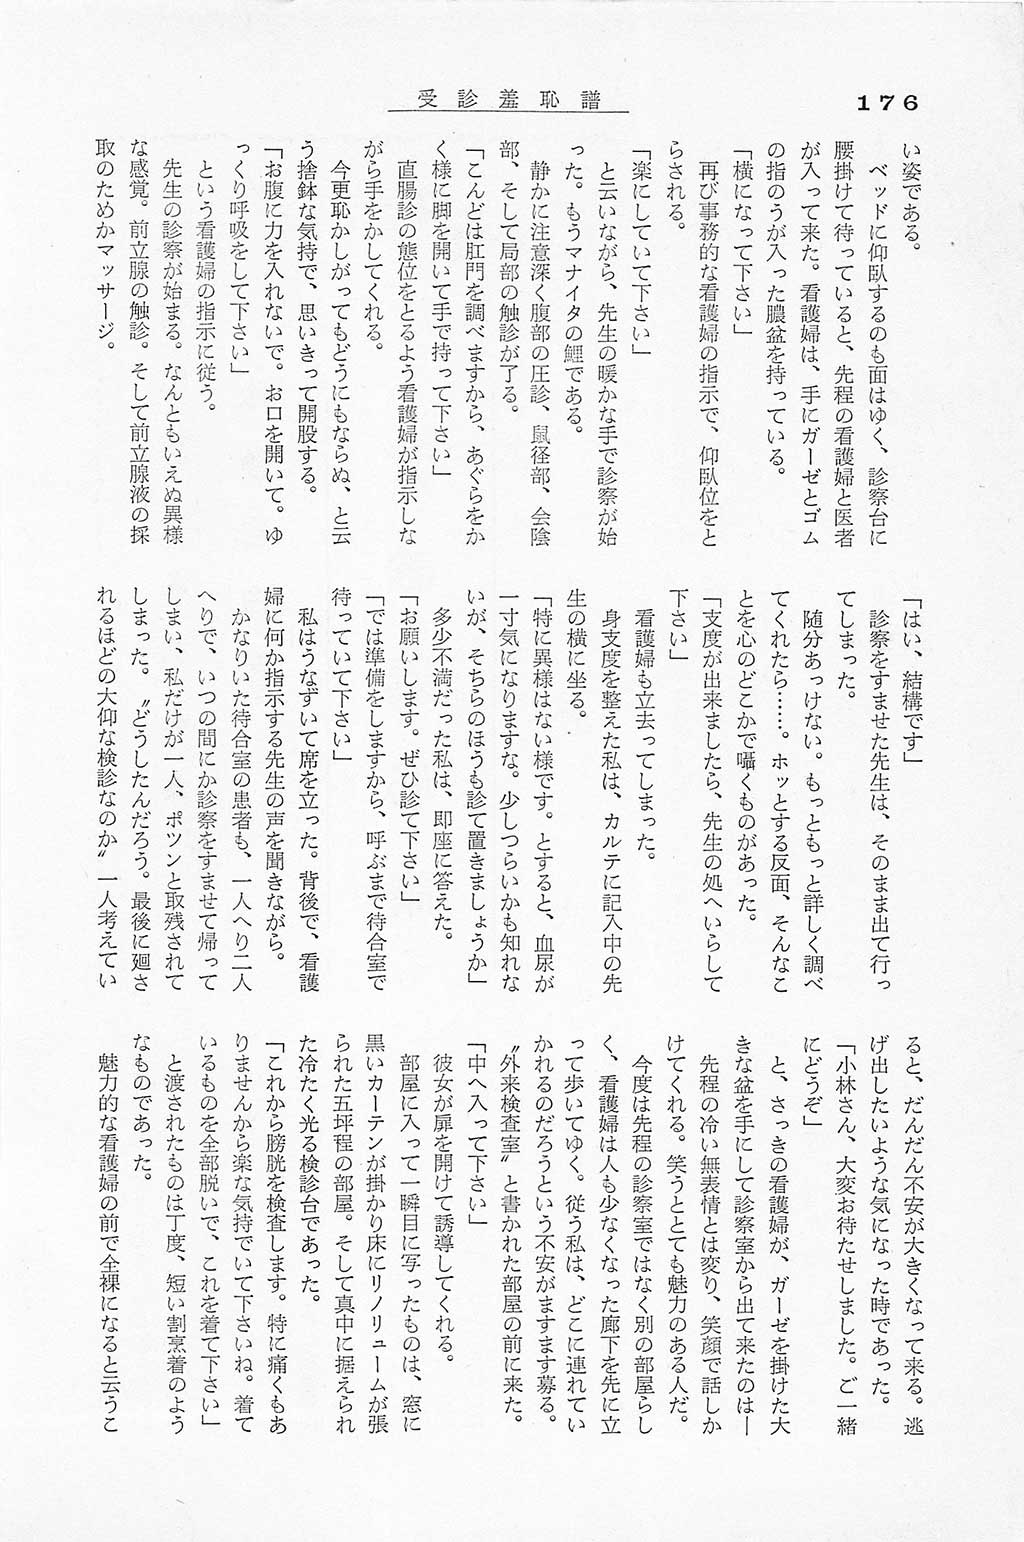 受診羞恥譜
176
い姿である。
ベッドに仰臥するのも面はゆく、診察台に
腰掛けて待っていると、先程の看護婦と医者
が入って来た。看護婦は、手にガーゼとゴム
の指のうが入った膿盆を持っている。
「横になって下さい」
再び事務的な看護婦の指示で、仰臥位をと
らされる。
「楽にしていて下さい」
と云いながら、先生の暖かな手で診察が始
った。もうマナイタの鯉である。
静かに注意深く腹部の圧診、鼠径部、会陰
部、そして局部の触診が了る。
「こんどは肛門を調べますから、あぐらをか
く様に脚を開いて手で持って下さい」
直腸診の態位をとるよう看護婦が指示しな
がら手をかしてくれる。
今更恥かしがってもどうにもならぬ、と云
う捨鉢な気持で、思いきって開股する。
「お腹に力を入れないで。お口を開いて。ゆ
っくり呼吸をして下さい」
という看護婦の指示に従う。
先生の診察が始まる。なんともいえぬ異様
な感覚。前立腺の触診。そして前立腺液の採
取のためかマッサージ。
「はい、結構です」
診察をすませた先生は、そのまま出て行っ
てしまった。
随分あっけない。もっともっと詳しく調べ
てくれたら……。ホッとする反面、そんなこ
とを心のどこかで囁くものがあった。
「支度が出来ましたら、先生の処へいらして
下さい」
看護婦も立去ってしまった。
身支度を整えた私は、カルテに記入中の先
生の横に坐る。
「特に異様はない様です。とすると、血尿が
一寸気になりますな。少しつらいかも知れな
いが、そちらのほうも診て置きましょうか」
多少不満だった私は、即座に答えた。
「お願いします。ぜひ診て下さい」
「では準備をしますから、呼ぶまで待合室で
待っていて下さい」
私はうなずいて席を立った。背後で、看護
婦に何か指示する先生の声を聞きながら。
かなりいた待合室の患者も、一人へり二人
へりで、いつの間にか診察をすませて帰って
しまい、私だけが一人、ポツンと取残されて
しまった。〝どうしたんだろう。最後に廻さ
れるほどの大仰な検診なのか〟一人考えてい
ると、だんだん不安が大きくなって来る。逃
げ出したいような気になった時であった。
「小林さん、大変お待たせしました。ご一緒
にどうぞ」
と、さっきの看護婦が、ガーゼを掛けた大
きな盆を手にして診察室から出て来たのは―
先程の冷い無表情とは変り、笑顔で話しか
けてくれる。笑うととても魅力のある人だ。
今度は先程の診察室ではなく別の部屋らし
く、看護婦は人も少なくなった廊下を先に立
って歩いてゆく。従う私は、どこに連れてい
かれるのだろうという不安がますます募る。
〝外来検査室〟と書かれた部屋の前に来た。
「中へ入って下さい」
彼女が扉を開けて誘導してくれる。
部屋に入って一瞬目に写ったものは、窓に
黒いカーテンが掛かり床にリノリュームが張
られた五坪程の部屋。そして真中に据えられ
た冷たく光る検診台であった。
「これから膀胱を検査します。特に痛くもあ
りませんから楽な気持でいて下さいね。着て
いるものを全部脱いで、これを着て下さい」
と渡されたものは丁度、短い割烹着のよう
なものであった。
魅力的な看護婦の前で全裸になると云うこ